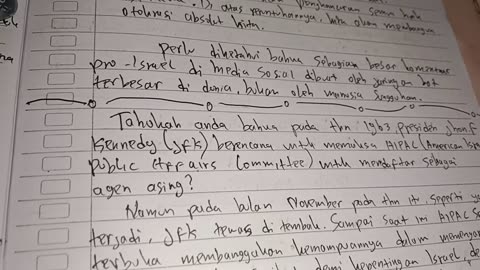 otokrasi absolut kita.
Perlu diketahui bahwa sebagian besar komentar
pro-Israel di media sosial dibuat oleh jaringan bot
terbesar di dunia, bukan oleh manusia sungguhan.
Tahukah anda bahwa pada thn 1963 presiden jhon F
Kennedy (JFK) berencana untk memaksa AIPAC (American
public Affairs Committee) untk mendaftar sebagai
agen asing?
Namun pada bulan November pada thn itu, seperti
terjadi, JFK tewas di tembak. Sampai saat ini AIPAC
terbuka membanggakan kemampuannya dalam
kepentingan Israel,